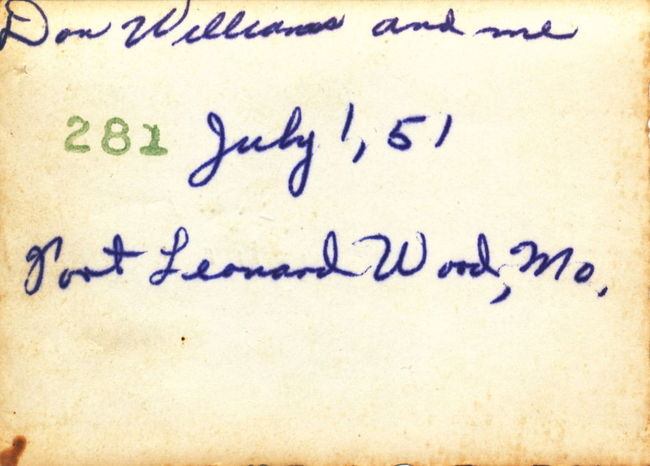 Don Williams and me
281 July 1, 51
Fort Leonard Wood, Mo.